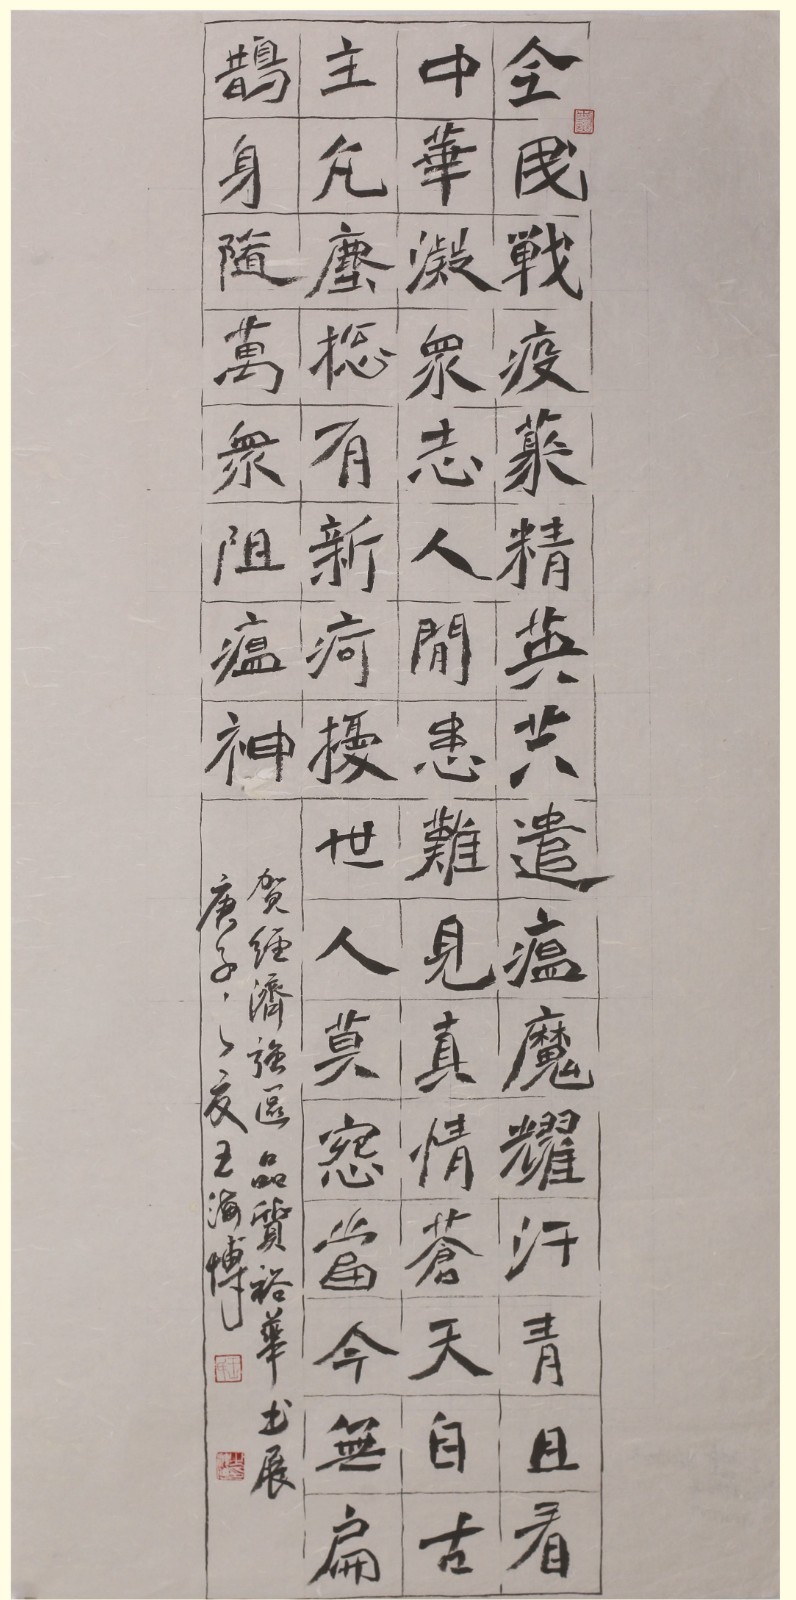 全民戰疫聚精英共遣瘟魔耀汗青且看
中華凝衆志人間患難見真情蒼天自古
主凡塵總有新疴擾世人莫怨當今無扁
鵲身隨萬衆阻瘟神
賀經濟強區品質裕華書展
庚子之夏王海博